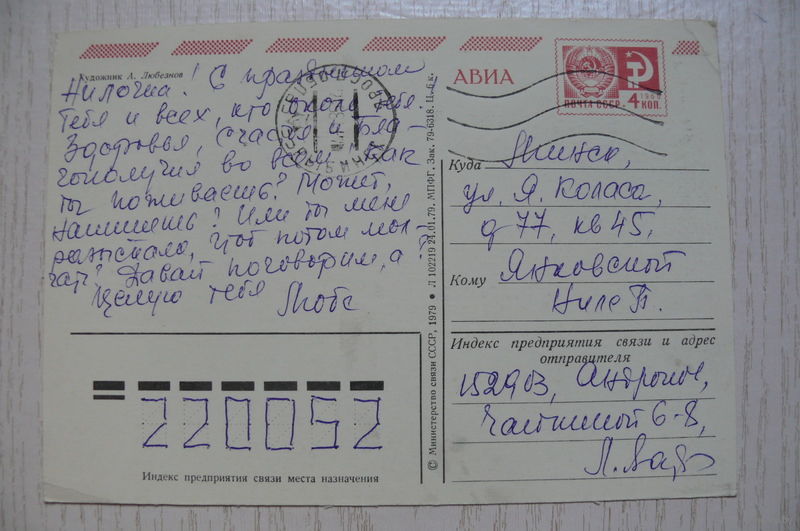 Художник А. Любезнов
Нилочка! С праздником
тебя и всех, кто около тебя.
Здоровья, счастья и бла-
гополучия во всем. Как
ты поживаешь? Может,
напишешь? Или ты меня
чтоб потом мол-
чать? Давай поговорим, а?
Целую тебя Люба
220052
Индекс предприятия связи места назначения
© Министерство связи СССР, 1979 ● Л 102219 24.01.79. МПФГ. Зак. 79-6318. Ц. 6 к.
АВИА
ПОЧТА СССР
4 КОП.
Куда Минск,
ул. Я. Коласа,
д 77, кв 45,
Кому Янковской
Ниле П.
Индекс предприятия связи и адрес
отправителя
152903, Андропов,
6-8,
Л.